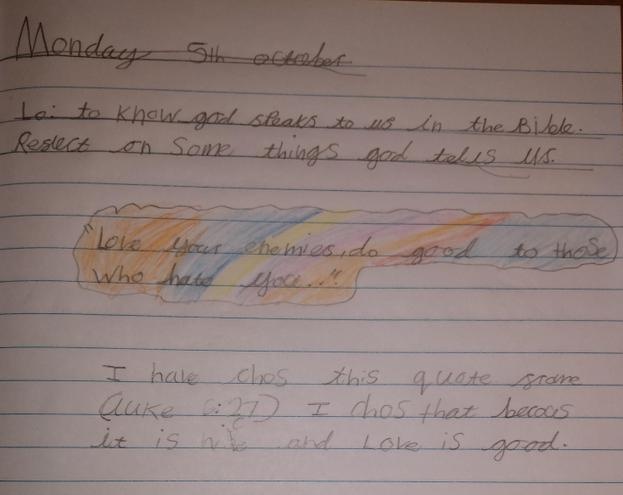 Monday 5th october
Lo: to know god speaks to us in the Bible.
Reslect on Some things god tells us.
"Love your enemies, do good to those
who hate you.."
I have chos this quote srone
(Luke 6:27) I chos that becous
it is and Love is good.